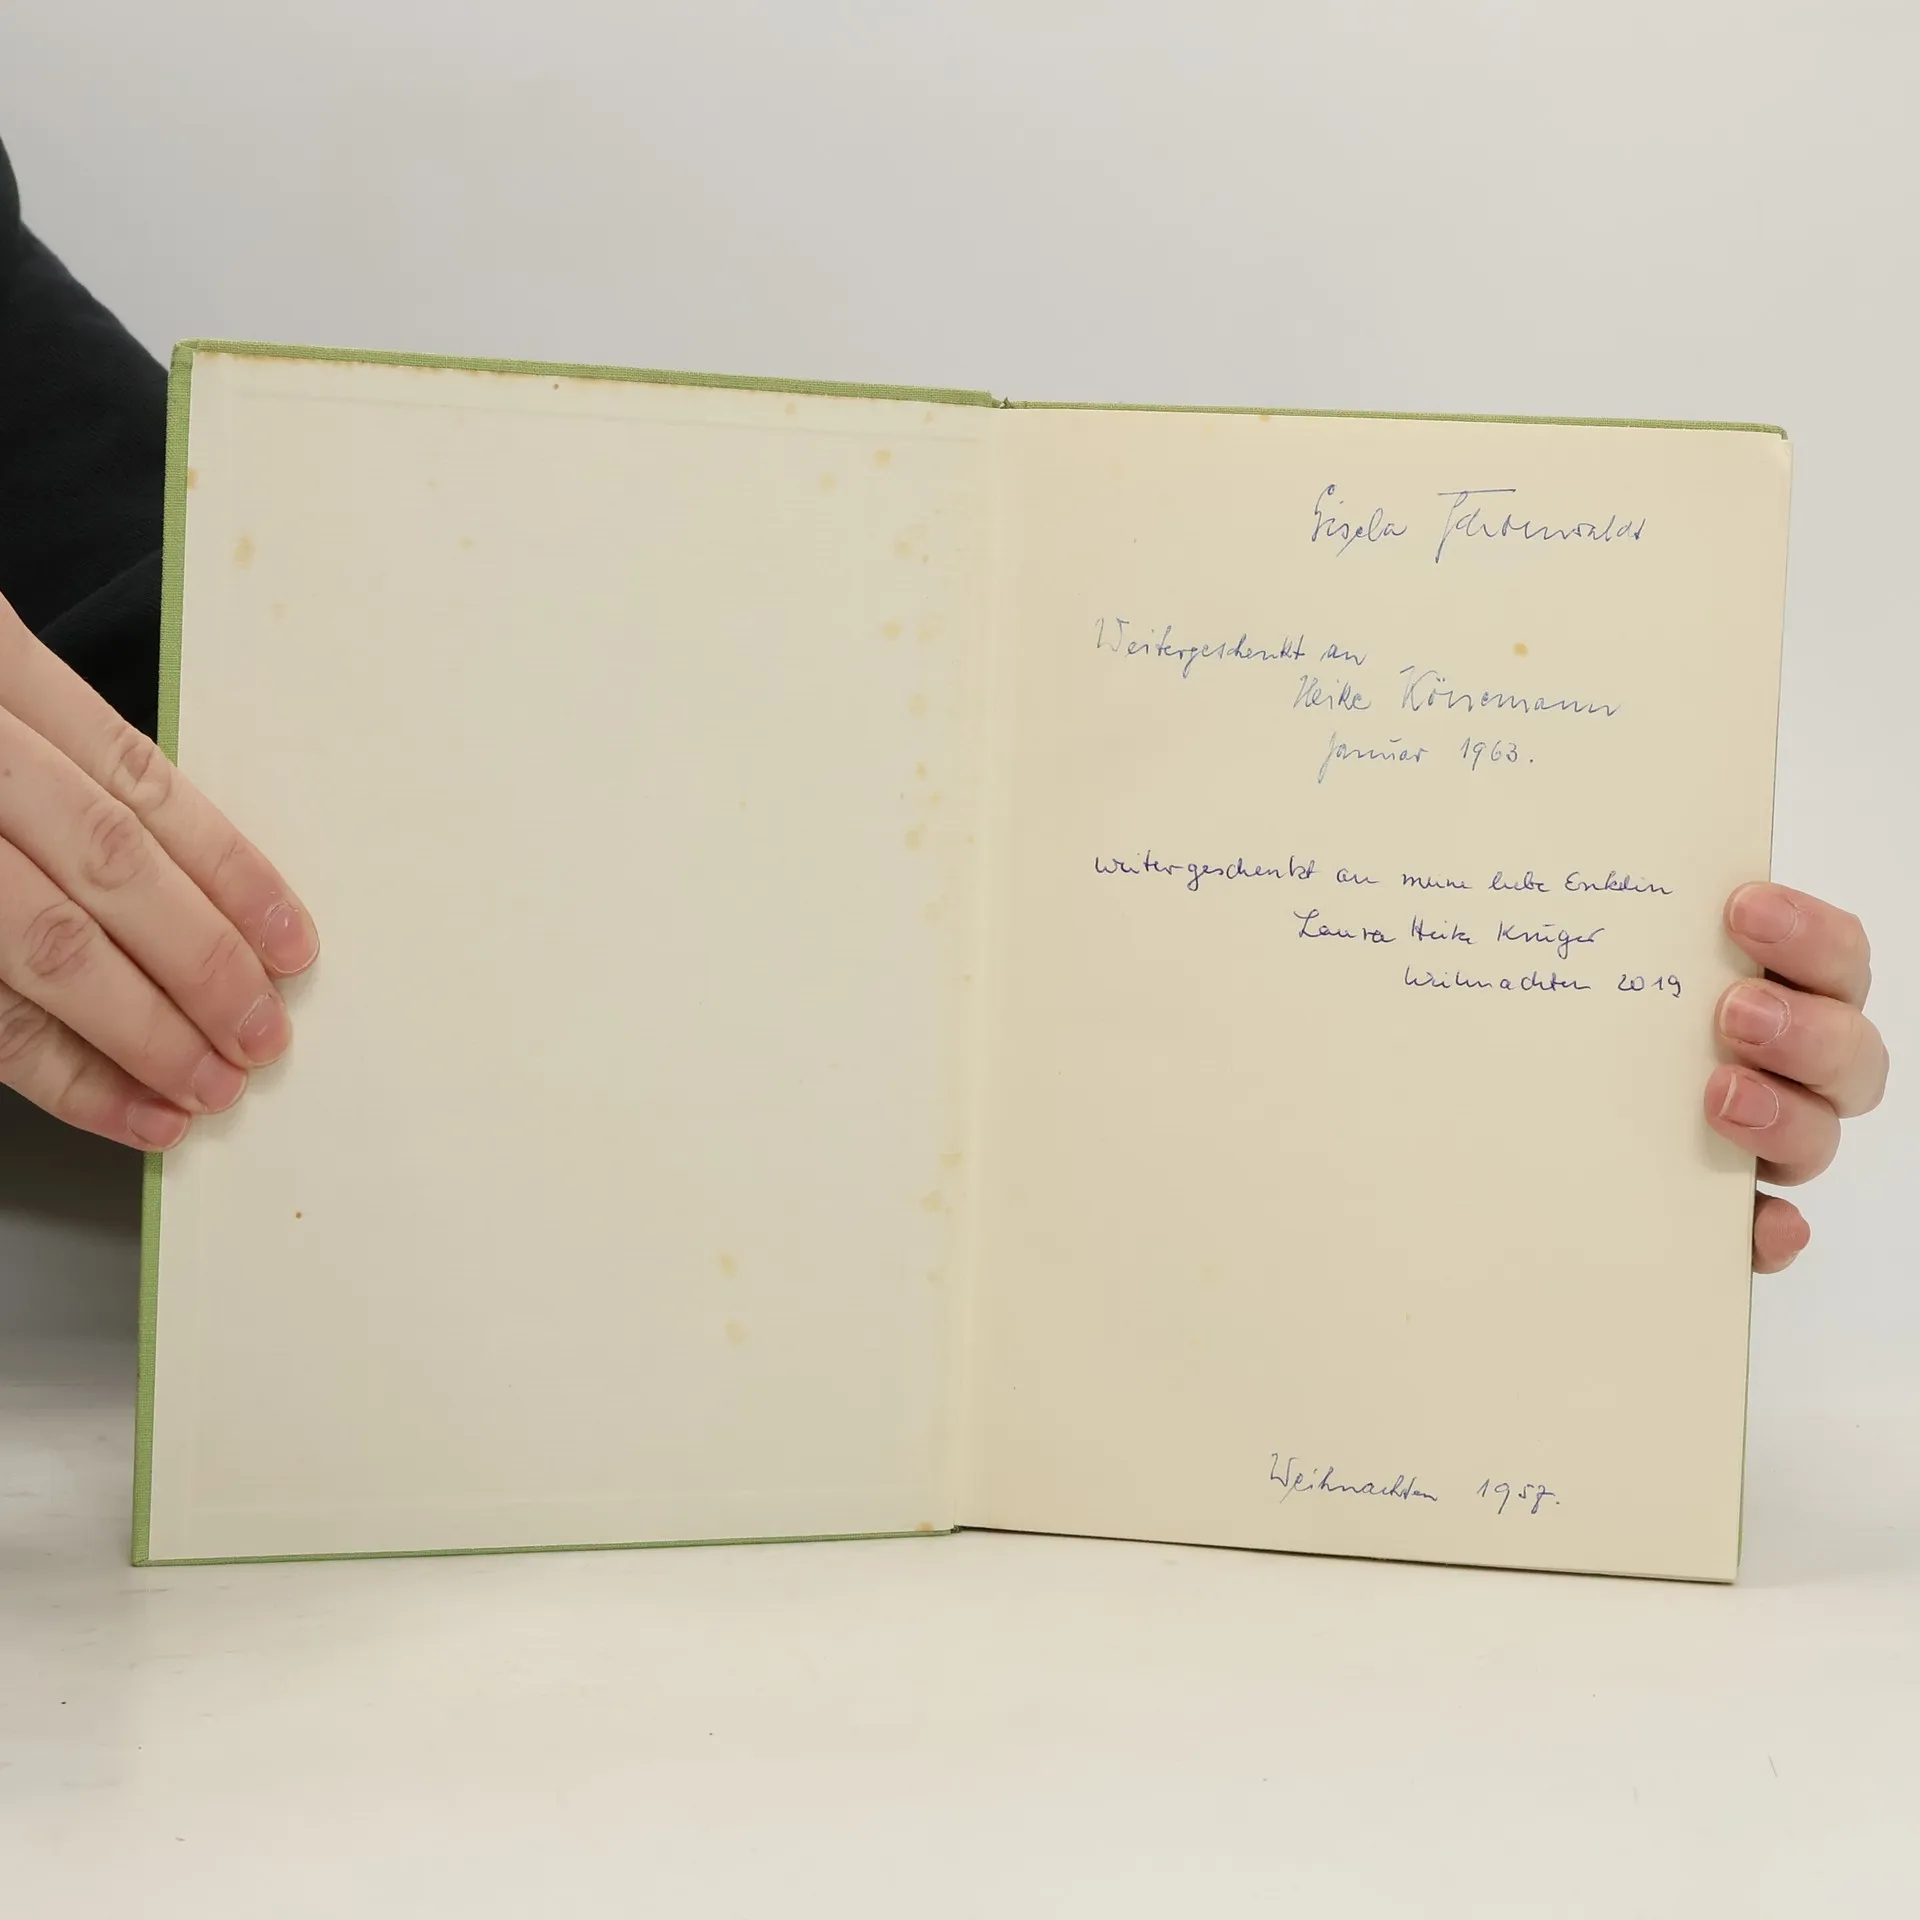 Gisela Schönwaldt
Weitergeschenkt an
Heike
Januar 1963.
weitergeschenkt an meine liebe Enkelin
Laura Heike Krüger
Weihnachten 2019
Weihnachten 1957.